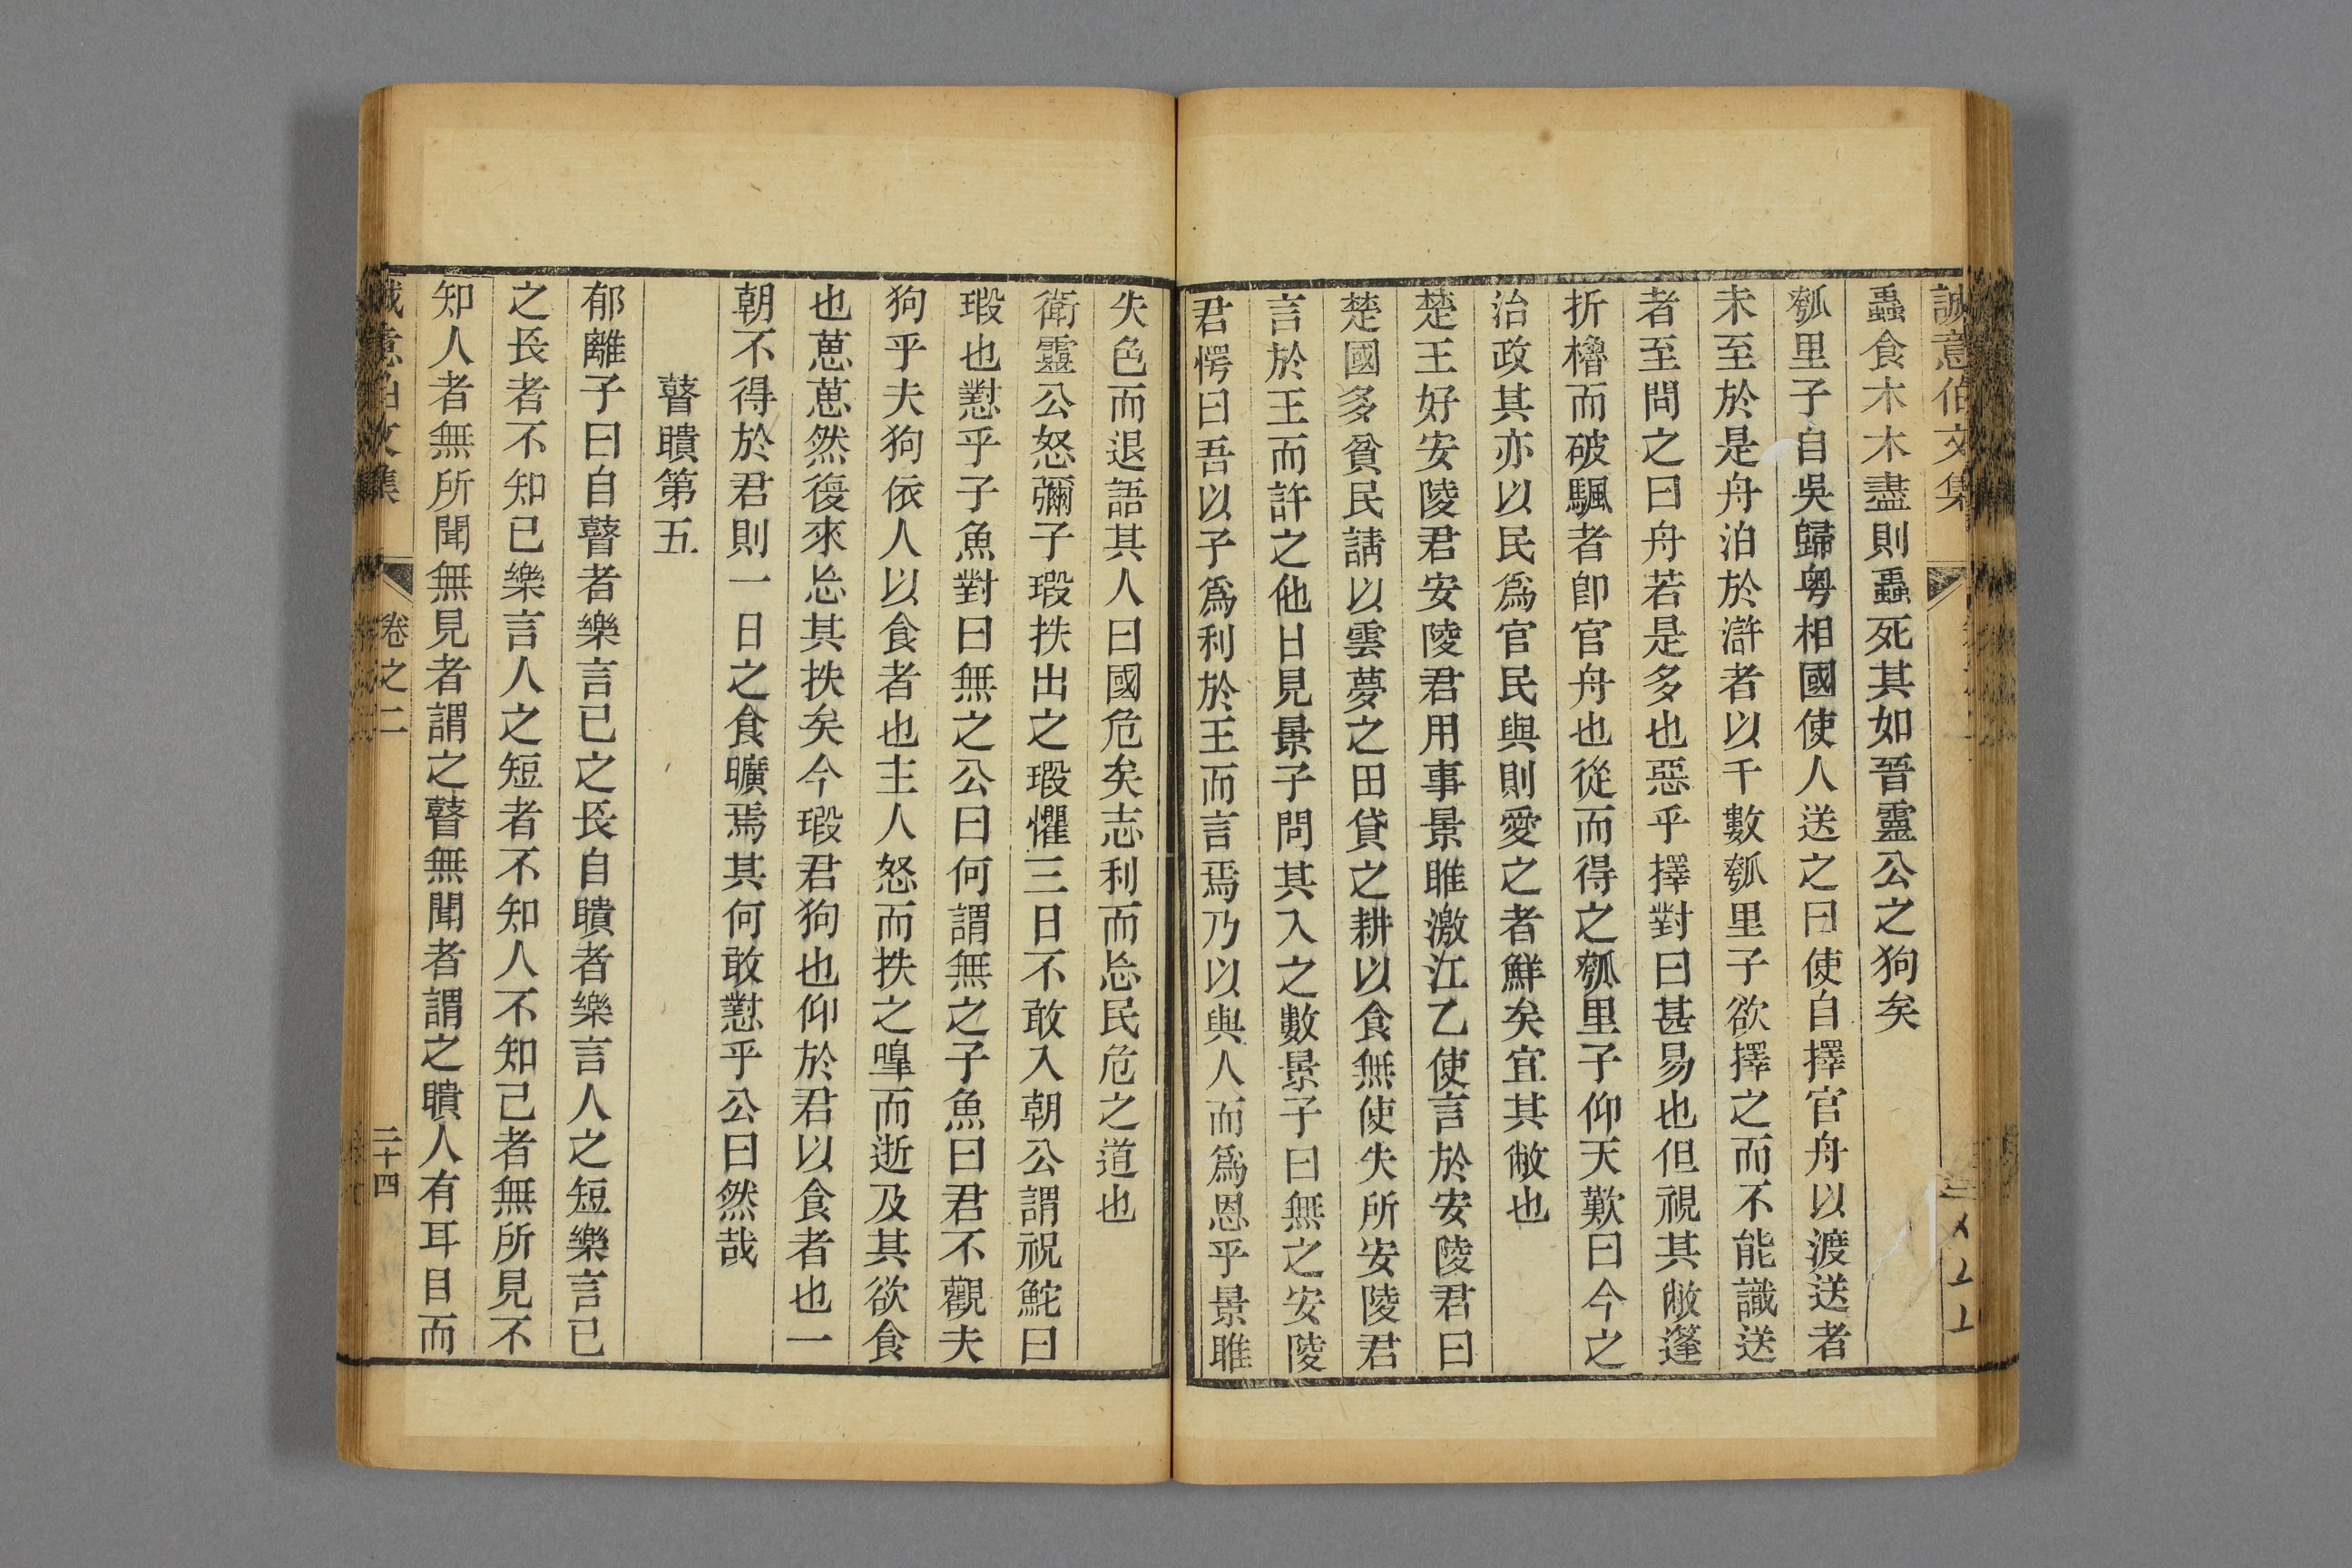 誠意伯文集
蟲食木木盡則蟲死其如晉靈公之狗矣
瓠里子自吳歸粤相國使人送之曰使自擇官舟以渡送者
未至於是舟泊於滸者以千數瓠里子欲擇之而不能識送
者至問之曰舟若是多也惡乎擇對曰甚易也但視其敝蓬
折櫓而破颿者卽官舟也從而得之瓠里子仰天歎曰今之
治政其亦以民爲官民與則愛之者鮮矣宜其敝也
楚王好安陵君安陵君用事景睢激江乙使言於安陵君曰
楚國多貧民請以雲夢之田貸之耕以食無使失所安陵君
言於王而許之他日見景子問其入之數景子曰無之安陵
君愕曰吾以子爲利於王而言焉乃以與人而爲恩乎景睢
失色而退語其人曰國危矣志利而忘民危之道也
衛靈公怒彌子瑕抶出之瑕懼三日不敢入朝公謂祝鮀曰
瑕也懟乎子魚對曰無之公曰何謂無之子魚曰君不觀夫
狗乎夫狗依人以食者也主人怒而抶之嘷而逝及其欲食
也葸葸然復來忘其抶矣今瑕君狗也仰於君以食者也一
朝不得於君則一日之食曠焉其何敢懟乎公曰然哉
瞽聵第五
郁離子曰自瞽者樂言己之長自聵者樂言人之短樂言己
之長者不知己樂言人之短者不知人不知己者無所見不
知人者無所聞無見者謂之瞽無聞者謂之聵人有耳目而
誠意伯文集 卷之二 二十四